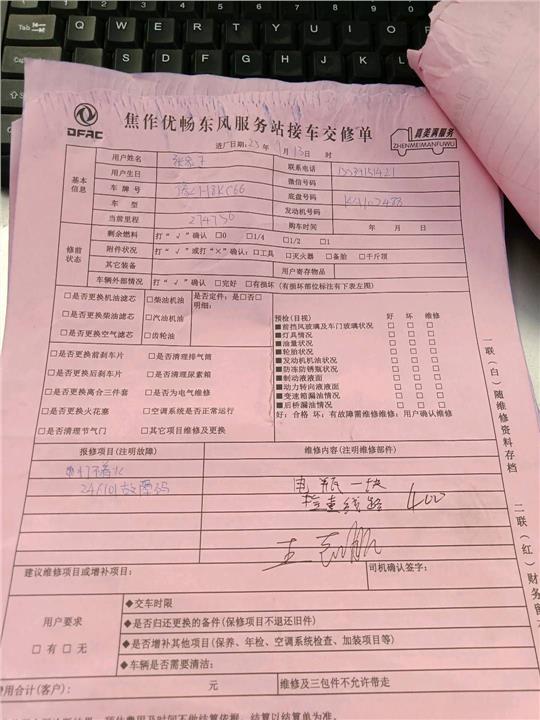 Tab
Caps
DFAC
焦作优畅东风服务站接车交修单
真美满服务
ZHENMEIMANFUWU
进厂日期: 23年 月 13日 时
基本信息
用户姓名
联系电话
用户生日
微信号码
车牌号
底盘号码
车型
发动机号码
当前里程 274730
购车时间 年 月 日
修前状态
剩余燃料 打“√”确认 □0 □1/4 □1/2 □1
附件状况 打“√”或打“×”确认:□工具 □灭火器 □备胎 □千斤顶
其它装备
用户寄存物品
车辆外部情况 打“√”确认 □完好 □有损坏(有损坏部位标注有下表左图)
□是否更换机油滤芯 □柴油机油 是否定件:是□否□
明细:
□是否更换柴油滤芯 □汽油机油
□是否更换空气滤芯 □齿轮油
□是否更换前刹车片 □是否清理排气筒
□是否更换后刹车片 □是否清理尿素箱
□是否更换离合三件套 □是否为电气维修
□是否更换火花塞 □空调系统是否正常运行
□是否清理节气门 □其它项目维修及更换
预检(目视) 好 坏 维修
■前挡风玻璃及车门玻璃状况 □ □ □
■灯具情况 □ □ □
■油量状况 □ □ □
■轮胎状况 □ □ □
■发动机机油状况 □ □ □
■防冻防锈瓶状况 □ □ □
■制动液液面 □ □ □
■动力转向液液面 □ □ □
■变速箱漏油情况 □ □ □
■后桥漏油情况 □ □ □
好:合格 坏:有故障需维修维修:用户确认维修
报修项目(注明故障)
维修内容(注明维修部件)
打不着火
241101故障码
电瓶一块
检查线路 400
建议维修项目或增补项目:
司机确认签字:
用户要求
□有□无
◆交车时限
◆是否归还更换的备件(保修项目不退还旧件)
◆是否增补其他项目(保养、年检、空调系统检查、加装项目等)
◆车辆是否需要清洁:
费用合计(客户): 元
维修及三包件不允许带走
一联(白)随维修资料存档
二联(红)财务